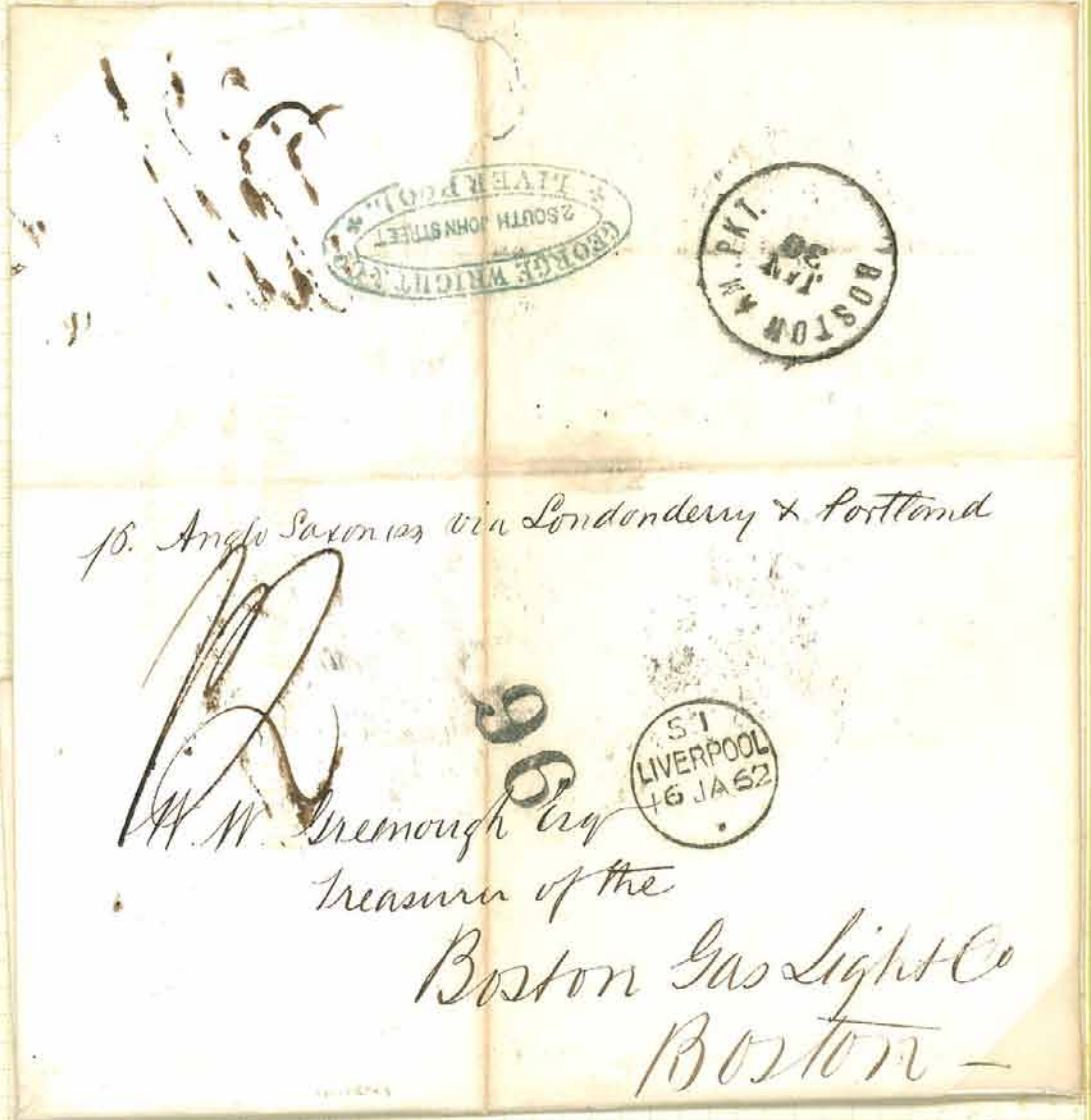 GEORGE WRIGHT & CO
LIVERPOOL
2 SOUTH JOHN STREET
BOSTON AM. PKT.
JAN
pr. Anglo Saxon via Londonderry & Portland
12
96
S 1
LIVERPOOL
16 JA 62
W. W. Greenough Esq
Treasurer of the
Boston Gas Light Co
Boston —